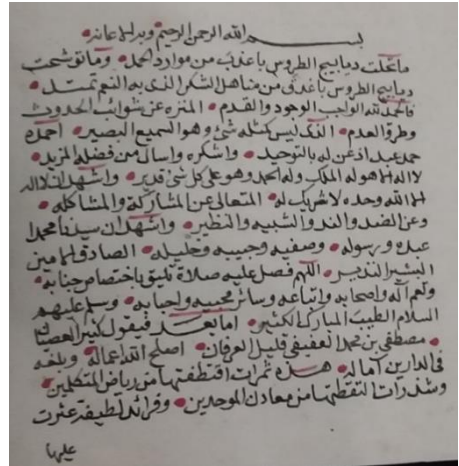 بسم الله الرحمن الرحيم وبه الاعانه
ما تحلت ديابيج الطروس باعذب من موارد الحمد وما توشحت
ديابيج الطروس باغدق من مناهل الشكر الذى به النعم تمتد
فالحمد لله الواجب الوجود والقدم المنزه عن شوائب الحدوث
وطرق العدم الذى ليس كمثله شئ وهو السميع البصير احمده
حمد عبد اذعن له بالتوحيد واشكره واسأل من فضله المزيد
لا اله الا هو له الملك وله الحمد وهو على كل شئ قدير واشهد ان لا اله
الا الله وحده لا شريك له المتعالى عن المشاركة والمشاكله
وعن الضد والند والشبيه والنظير واشهد ان سيدنا محمدا
عبده ورسوله وصفيه وحبيبه وخليله الصادق الامين
البشير النذير اللهم فصل عليه صلاة تليق باختصاص جنابه
وتعم آله واصحابه واتباعه وسائر محبيه واحبابه وسلم عليهم
السلام الطيب المبارك الكثير اما بعد فيقول كثير العصيان
مصطفى بن محمد العفيفى قليل العرفان اصلح الله اعماله وبلغه
فى الدارين آماله هذه ثمرات اقتطفتها من رياض المتكلمين
وشذرات التقطتها من معادن الموحدين وفرائد لطيفة عثرت
عليها